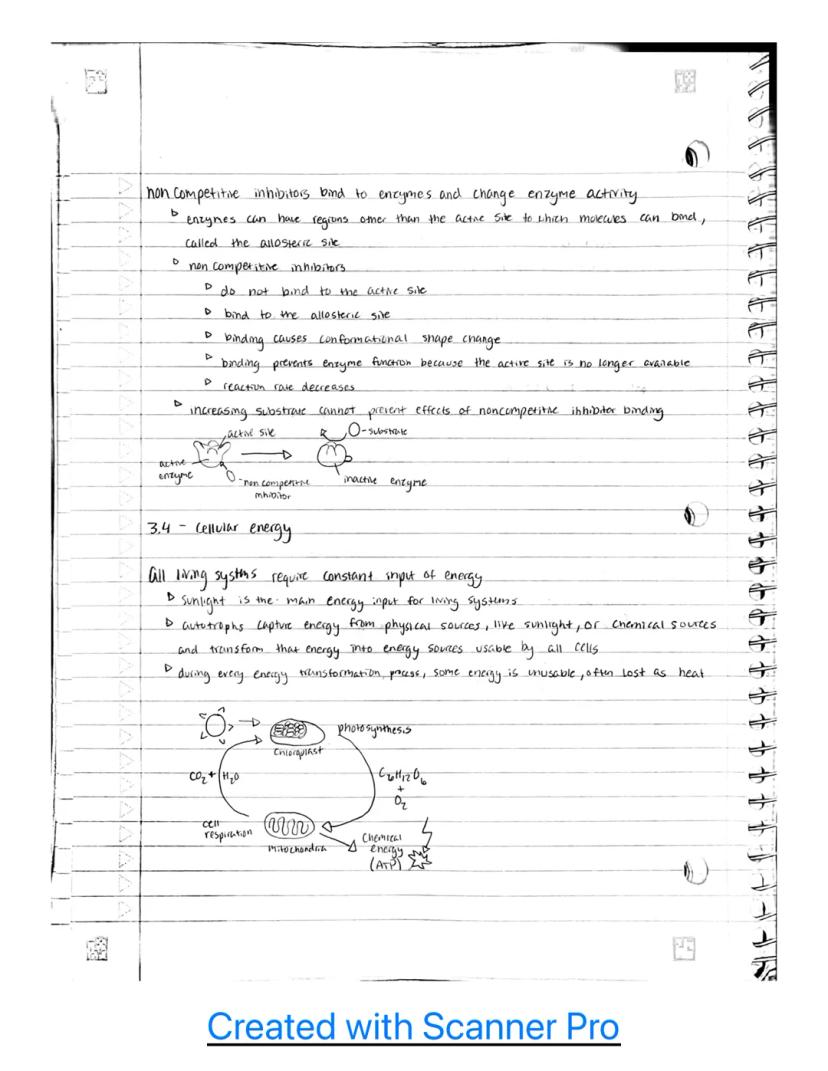 non competitive inhibitors bind to enzymes and change enzyme activity
enzymes can have regions other than the active site to which molecules can bind,
called the allosteric site
non competitive inhibitors
do not bind to the active site
bind to the allosteric site
binding causes conformational shape change
binding prevents enzyme function because the active site is no longer available
reaction rate decreases
increasing substrate cannot prevent effects of noncompetitive inhibitor binding
active site
- substrate
active
enzyme
- non competitive
inhibitor
inactive enzyme
3.4 - Cellular energy
All living systems require constant input of energy
sunlight is the main energy input for living systems
autotrophs capture energy from physical sources, like sunlight, or chemical sources
and transform that energy into energy sources usable by all cells
during every energy transformation process, some energy is unusable, often lost as heat
photosynthesis
Chloroplast
CO₂ + H₂O
C₆H₁₂O₆
+
O₂
cell
respiration
Mitochondria
Chemical
energy
(ATP)
Created with Scanner Pro